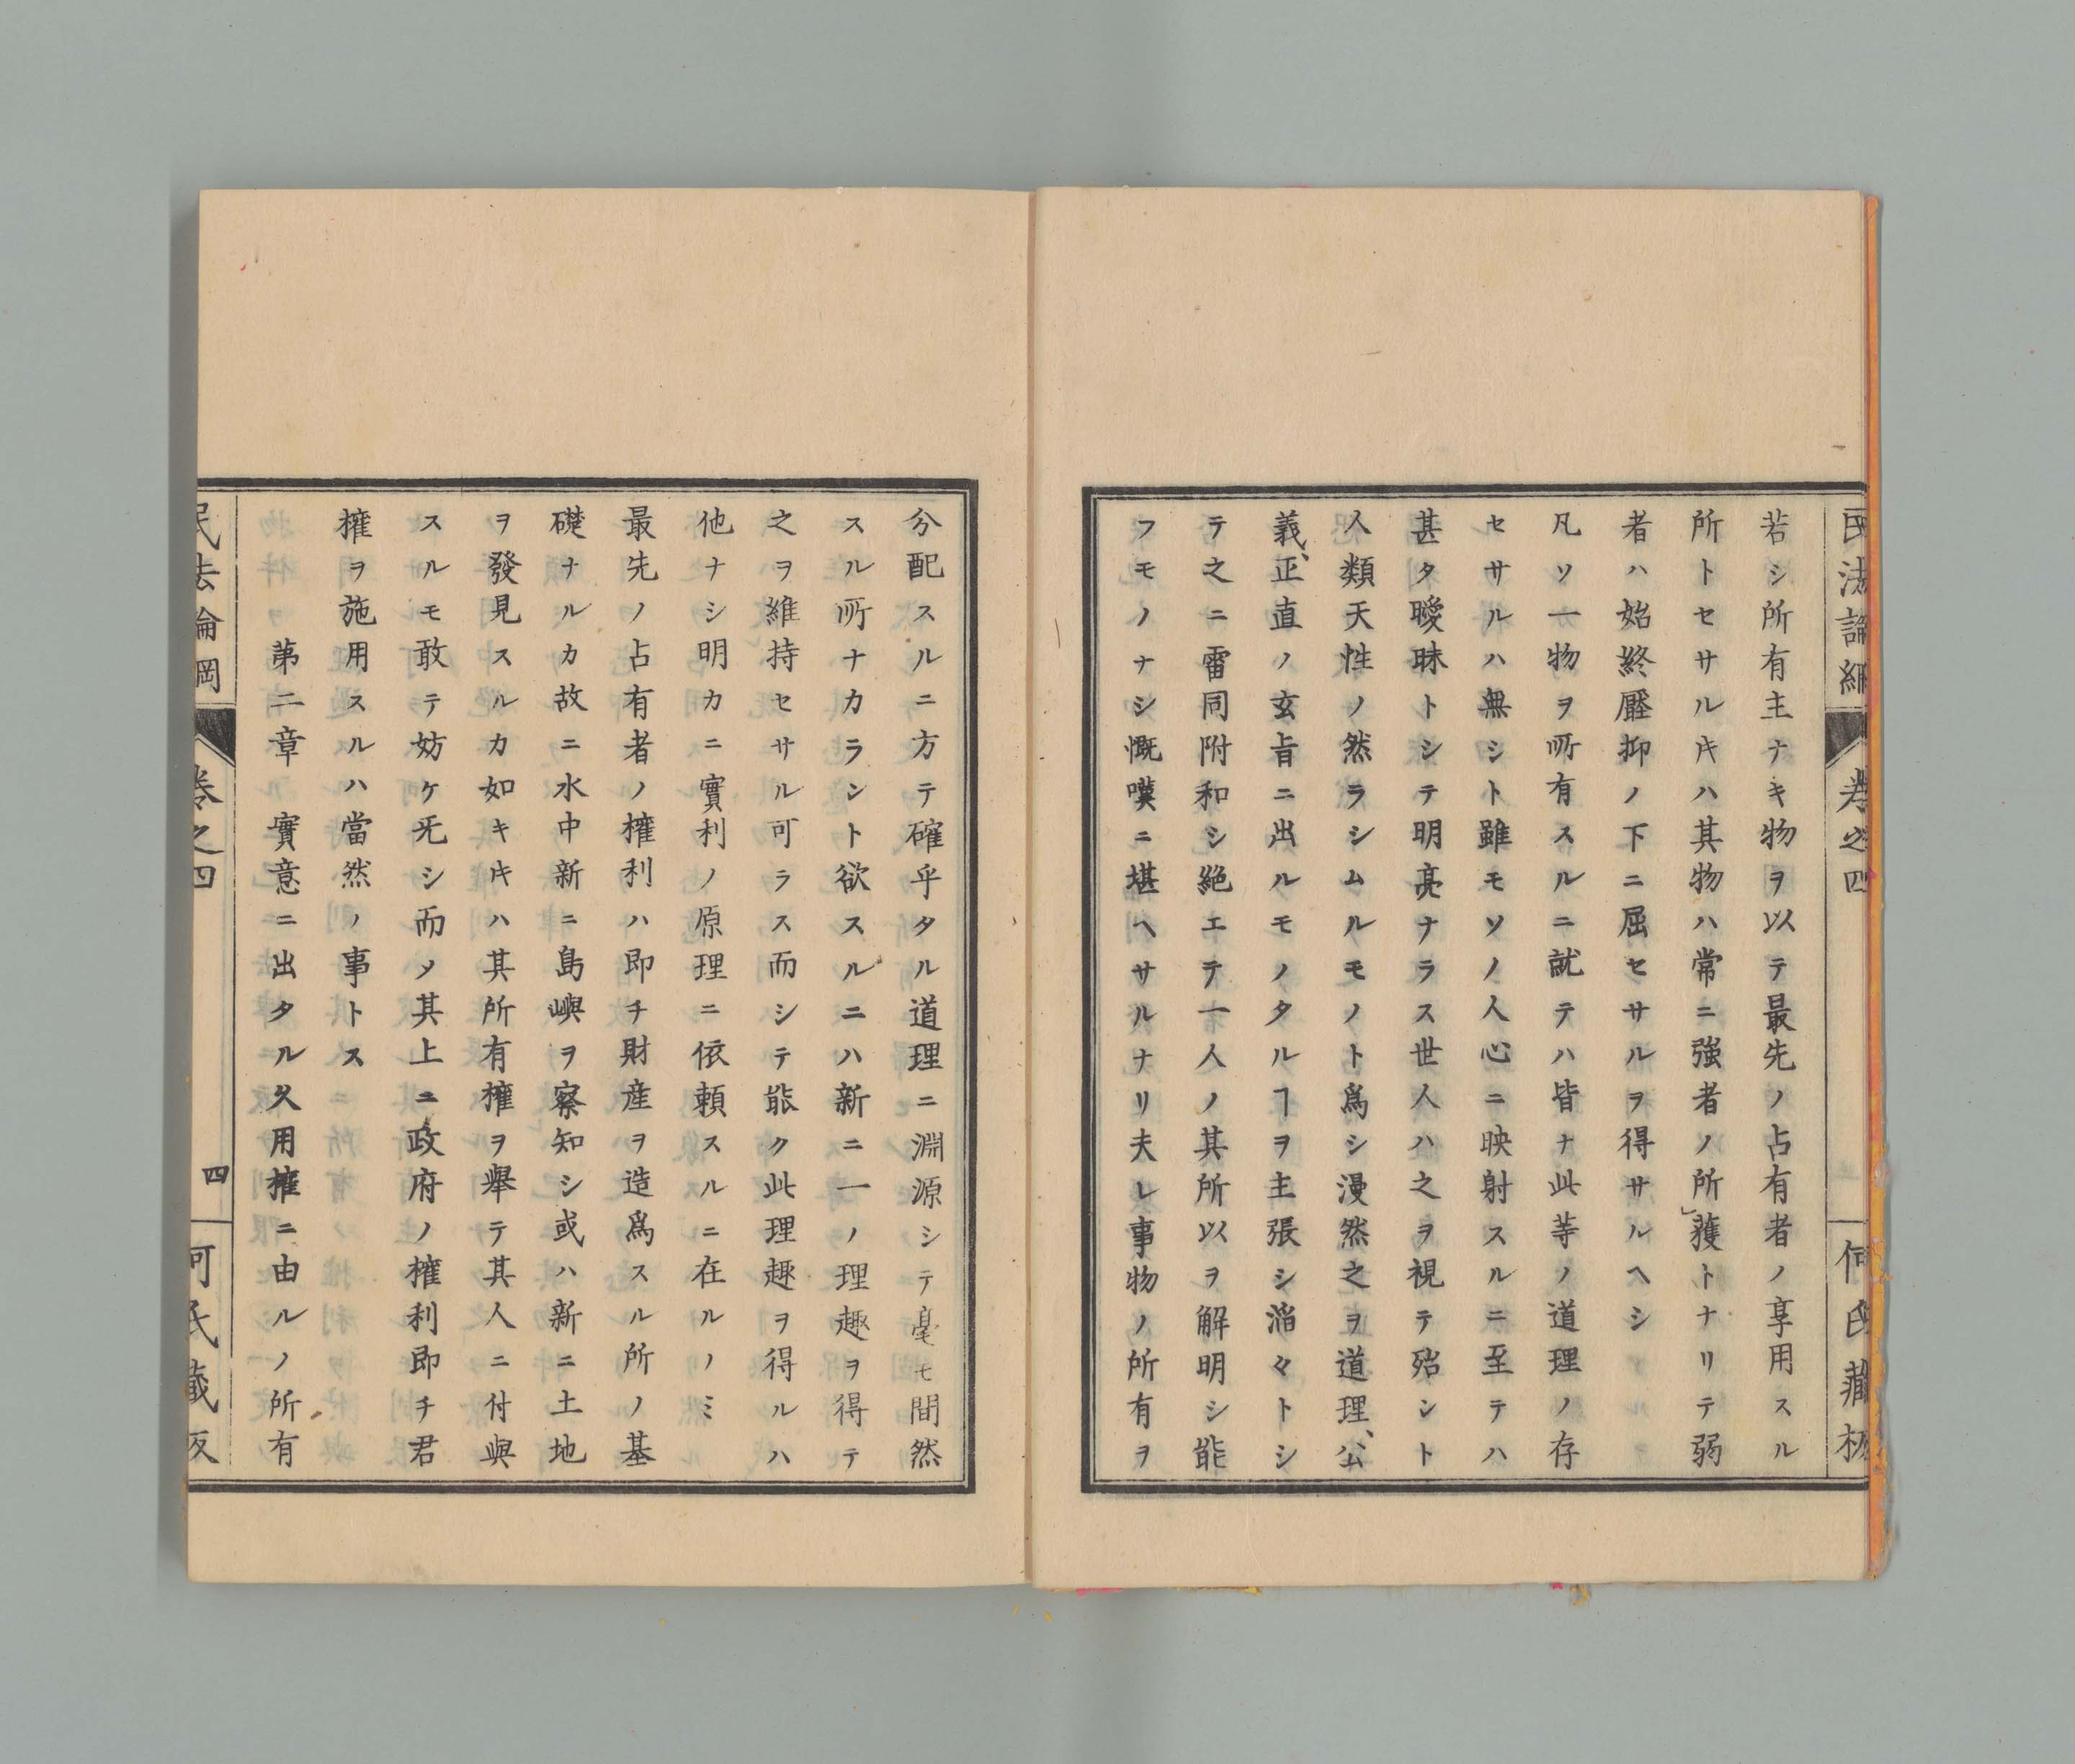 民法論綱 卷之四 何氏藏板
若シ所有主ナキ物ヲ以テ最先ノ占有者ノ享用スル
所トセサルㇳキハ其物ハ常ニ強者ノ所獲トナリテ弱
者ハ始終壓抑ノ下ニ屈セサルヲ得サルヘシ
凡ソ一物ヲ所有スルニ就テハ皆ナ此等ノ道理ノ存
セサルハ無シト雖モソノ人心ニ映射スルニ至テハ
甚タ曖昧トシテ明亮ナラス世人ハ之ヲ視テ殆ント
人類天性ノ然ラシムルモノト爲シ漫然之ヲ道理、公
義、正直ノ玄旨ニ出ルモノタルヿヲ主張シ滔々トシ
テ之ニ雷同附和シ絶エテ一人ノ其所以ヲ解明シ能
フモノナシ慨嘆ニ堪ヘサルナリ夫レ事物ノ所有ヲ
分配スルニ方テ確乎タル道理ニ淵源シテ毫モ間然
スル所ナカラント欲スルニハ新ニ一ノ理趣ヲ得テ
之ヲ維持セサル可ラス而シテ能ク此理趣ヲ得ルハ
他ナシ明カニ實利ノ原理ニ依頼スルニ在ルノミ
最先ノ占有者ノ權利ハ即チ財産ヲ造爲スル所ノ基
礎ナルカ故ニ水中新ニ島嶼ヲ察知シ或ハ新ニ土地
ヲ發見スルカ如キㇳキハ其所有權ヲ擧テ其人ニ付與
スルモ敢テ妨ケ无シ而〆其上ニ政府ノ權利即チ君
權ヲ施用スルハ當然ノ事トス
第二章 實意ニ出タル久用權ニ由ルノ所有
民法論綱 卷之四 四 何氏藏板